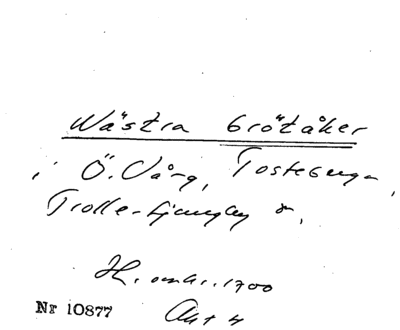 Wästra brötåker
i Ö. Vång, Tosteberga,
Trolle-Ljungby
H. omkr. 1700
Nr 10877 Akt 4